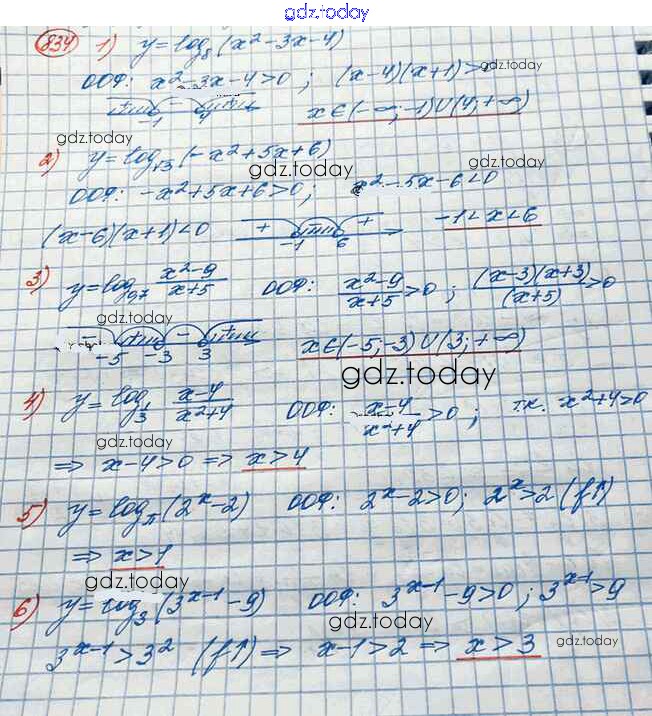 gdz.today
834 1) y=log₈(x²-3x-4)
ООФ: x²-3x-4>0 ; (x-4)(x+1)>0 gdz.today
+ - + -1 4 x∈(-∞;-1)∪(4;+∞)
gdz.today
2) y=log√3(-x²+5x+6) gdz.today
gdz.today
ООФ: -x²+5x+6>0; x²-5x-6<0
(x-6)(x+1)<0 + - + -1 6 -1<x<6
3) y=log₀,₇ (x²-9)/(x+5) ООФ: (x²-9)/(x+5)>0 ; ((x-3)(x+3))/(x+5)>0
- + - + -5 -3 3 x∈(-5;-3)∪(3;+∞)
gdz.today
4) y=log₁/₃ (x-4)/(x²+4) ООФ: (x-4)/(x²+4)>0 ; т.к. x²+4>0
gdz.today
⇒ x-4>0 ⇒ x>4
5) y=logπ(2ˣ-2) ООФ: 2ˣ-2>0; 2ˣ>2 (f↑)
⇒ x>1
gdz.today
6) y=log₃(3ˣ⁻¹-9) ООФ: 3ˣ⁻¹-9>0 ; 3ˣ⁻¹>9
gdz.today
3ˣ⁻¹>3² (f↑) ⇒ x-1>2 ⇒ x>3 gdz.today